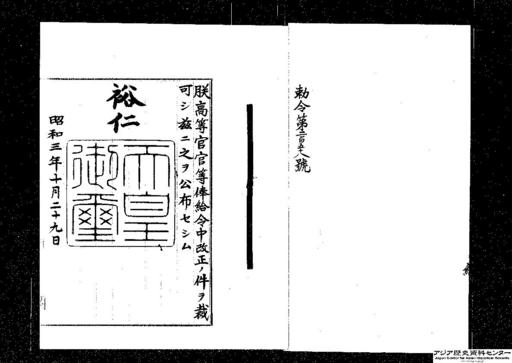 勅令第二百五十八號
朕高等官官等俸給令中改正ノ件ヲ裁
可シ茲ニ之ヲ公布セシム
裕仁
天皇
御璽
昭和三年十月二十九日
アジア歴史資料センター
Japan Center for Asian Historical Records